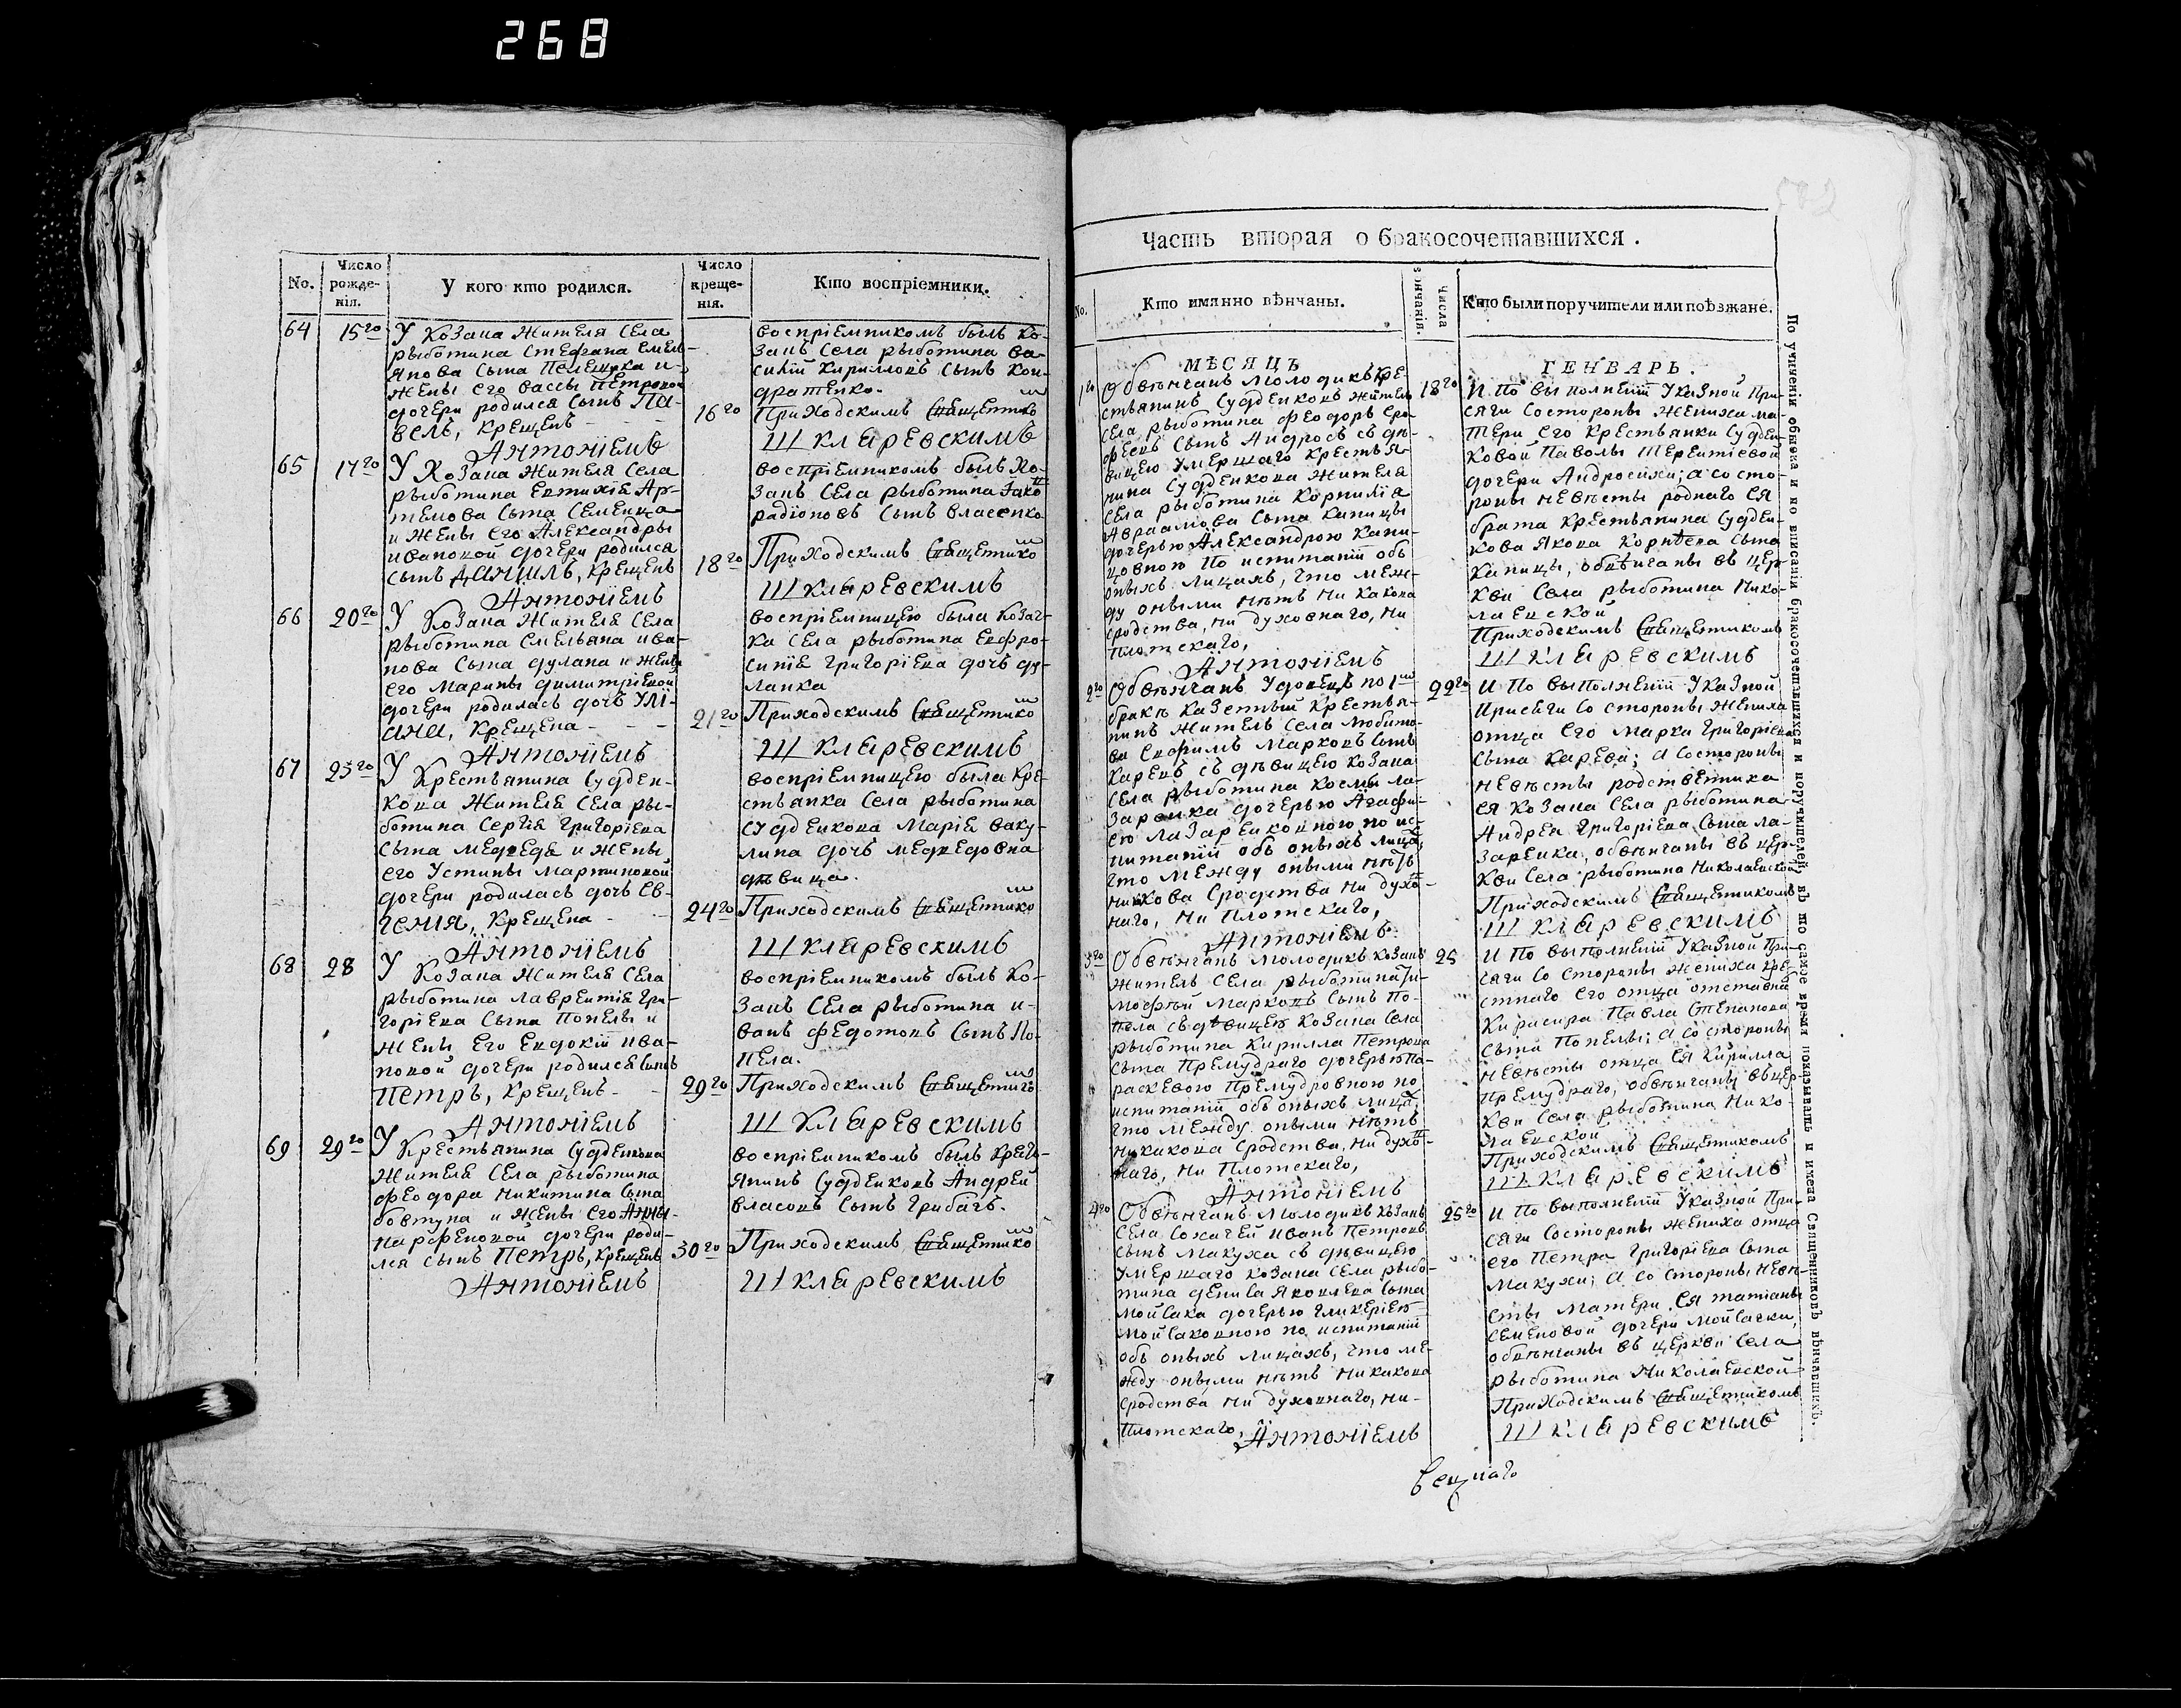 268
No.
Число рожде-нія.
У кого кто родился.
Число креще-нія.
Кто воспріемники.
64 15го
У Козака жителя Села
рыботина Стефана Емель-
янова Сына Пелешука и
жены его вассы Петровой
дочери родился Сынъ Па-
велъ, крещенъ
Антоніемъ
воспріемникомъ былъ Ко-
закъ Села рыботина ва-
силій Кириловъ Сынъ Кон-
дратенко.
16го
Приходскимъ Священнико
Шкляревскимъ
65 17го
У Козака жителя Села
рыботина Евтихія Ар-
темова Сына Семенца
и жены его Александры
ивановой дочери родился
Сынъ Даніилъ, крещенъ
Антоніемъ
воспріемникомъ былъ Ко-
закъ Села рыботина Іако
радіоновъ Сынъ власенко
18го
Приходскимъ Священнико
Шкляревскимъ
66 20го
У Козака жителя Села
рыботина Емельяна ива-
нова Сына дулапа и жены
его Марины димитріевой
дочери родилась дочь Улі-
ана, крещена
Антоніемъ
воспріемницею была козач-
ка Села рыботина Евфро-
синія григоріева дочь ду-
лапка
21го
Приходскимъ Священнико
Шкляревскимъ
67 23го
У Крестьянина Судден-
кова жителя Села ры-
ботина Сергія григоріева
Сына медведя и жены
его Устины мартиновой
дочери родилась дочь Ев-
генія, крещена
Антоніемъ
воспріемницею была кре-
стьянка Села рыботина
Судденкова Марія ваку-
лина дочь медведовна
дѣвица.
24го
Приходскимъ Священнико
Шкляревскимъ
68 28
У Козака жителя Села
рыботина лаврентія гри-
горіева Сына Попелы и
жены его Евдокіи ива-
новой дочери родился Сынъ
Петръ, крещенъ
Антоніемъ
воспріемникомъ былъ Ко-
закъ Села рыботина и-
ванъ федотовъ Сынъ По-
пела.
29го
Приходскимъ Священнико
Шкляревскимъ
69 29го
У Крестьянина Судденкова
жителя Села рыботина
феодора никитина Сына
бовтуна и жены его Анны
парфеновой дочери роди-
лся сынъ Петръ, крещенъ
Антоніемъ
воспріемникомъ былъ крест-
янинъ Судденковъ Андрей
власовъ Сынъ грибачъ.
30го
Приходскимъ Священнико
Шкляревскимъ
Часть вторая о бракосочетавшихся.
No.
Кто имянно вѣнчаны.
Числа вѣнчанія.
Кто были поручители или поѣзжане.
МѢСЯЦЪ ГЕНВАРЬ.
1го
Обвѣнчанъ Молодикъ кре-
стьянинъ Судденковъ житель
Села рыботина феодоръ Еро-
феевъ Сынъ Андросъ съ дѣ-
вицею умершаго крестья-
нина Судденкова жителя
Села рыботина Корнилія
Авраамова Сына Капицы
дочерью Александрою Капи-
цовною По испитаніи объ
оныхъ лицахъ, что меж-
ду оными нѣтъ никакова
сродства, ни духовнаго, ни
плотскаго,
Антоніемъ
18го
И По выполненіи Указной При-
сяги Состороны жениха ма-
тери его крестьянки Судден-
ковой Павлы Терентіевой
дочери Андросихи; а со сто-
роны невѣсты роднаго ея
брата крестьянина Судден-
кова Якова Корнѣева Сына
Капицы, обвѣнчаны въ цер-
кви Села рыботина Нико-
лаевской
Приходскимъ Священникомъ
Шкляревскимъ
2го
Обвѣнчанъ Удовецъ по 1м
бракѣ казенный крестья-
нинъ житель Села любито-
ва Ефимъ Марковъ Сынъ
Каревъ съ дѣвицею козака
Села рыботина Космы ла-
заренка дочерью Агафи-
ею лазаренковною по ис-
питаніи объ оныхъ лица,
что между оными нѣтъ
никакова Сродства ни духо-
наго, ни плотскаго,
Антоніемъ.
22го
И По выполненіи Указной
Присяги со стороны жениха
отца его Марка григоріева
Сына Карева; а Состороны
невѣсты родственника
ея козака Села рыботина
Андрея григоріева Сына ла-
заренка, обвѣнчаны въ цер-
кви Села рыботина Николаевской
Приходскимъ Священникомъ
Шкляревскимъ
3го
Обвѣнчанъ Молодикъ козакъ
житель Села рыботина Ти-
мофѣй Марковъ Сынъ По-
пела съ дѣвицею козака Села
рыботина Кирилла Петрова
Сына Премудраго дочерью Па-
раскевою Премудровною по
испитаніи объ оныхъ лица,
что между оными нѣтъ
никакова Сродства, ни духо-
наго, ни плотскаго,
Антоніемъ
25
И По выполненіи Указной При-
сяги Со стороны жениха кре-
стнаго его отца отставна
Кирасира Павла Степанова
Сына Попелы; а со стороны
невѣсты отца ея Кирилла
Премудраго, обвѣнчаны въ цер-
кви Села рыботина Нико-
лаевской
Приходскимъ Священникомъ
Шкляревскимъ
4го
Обвѣнчанъ Молодикъ козакъ
Села Сохачей иванъ Петровъ
Сынъ Макуха съ дѣвицею
умершаго козака Села рыбо-
тина дениса Яковлева Сына
Мойсака дочерью гликеріею
Мойсаковною по испитаніи
объ оныхъ лицахъ, что ме-
жду оными нѣтъ никакова
Сродства ни духовнаго, ни-
плотскаго,
Антоніемъ
25го
И По выполненіи Указной При-
сяги Состороны жениха отца
его Петра григоріева Сына
Макухи; а со стороны невѣ-
сты матери ея татіаны
Семеновой дочери Мойсачки,
обвѣнчаны въ церкви Села
рыботина Николаевской
Приходскимъ Священникомъ
Шкляревскимъ
По учиненіи обыска и по вписаніи бракосочетавшихся и поручителей, въ то самое время показывать и имена Священниковъ вѣнчавшихъ.